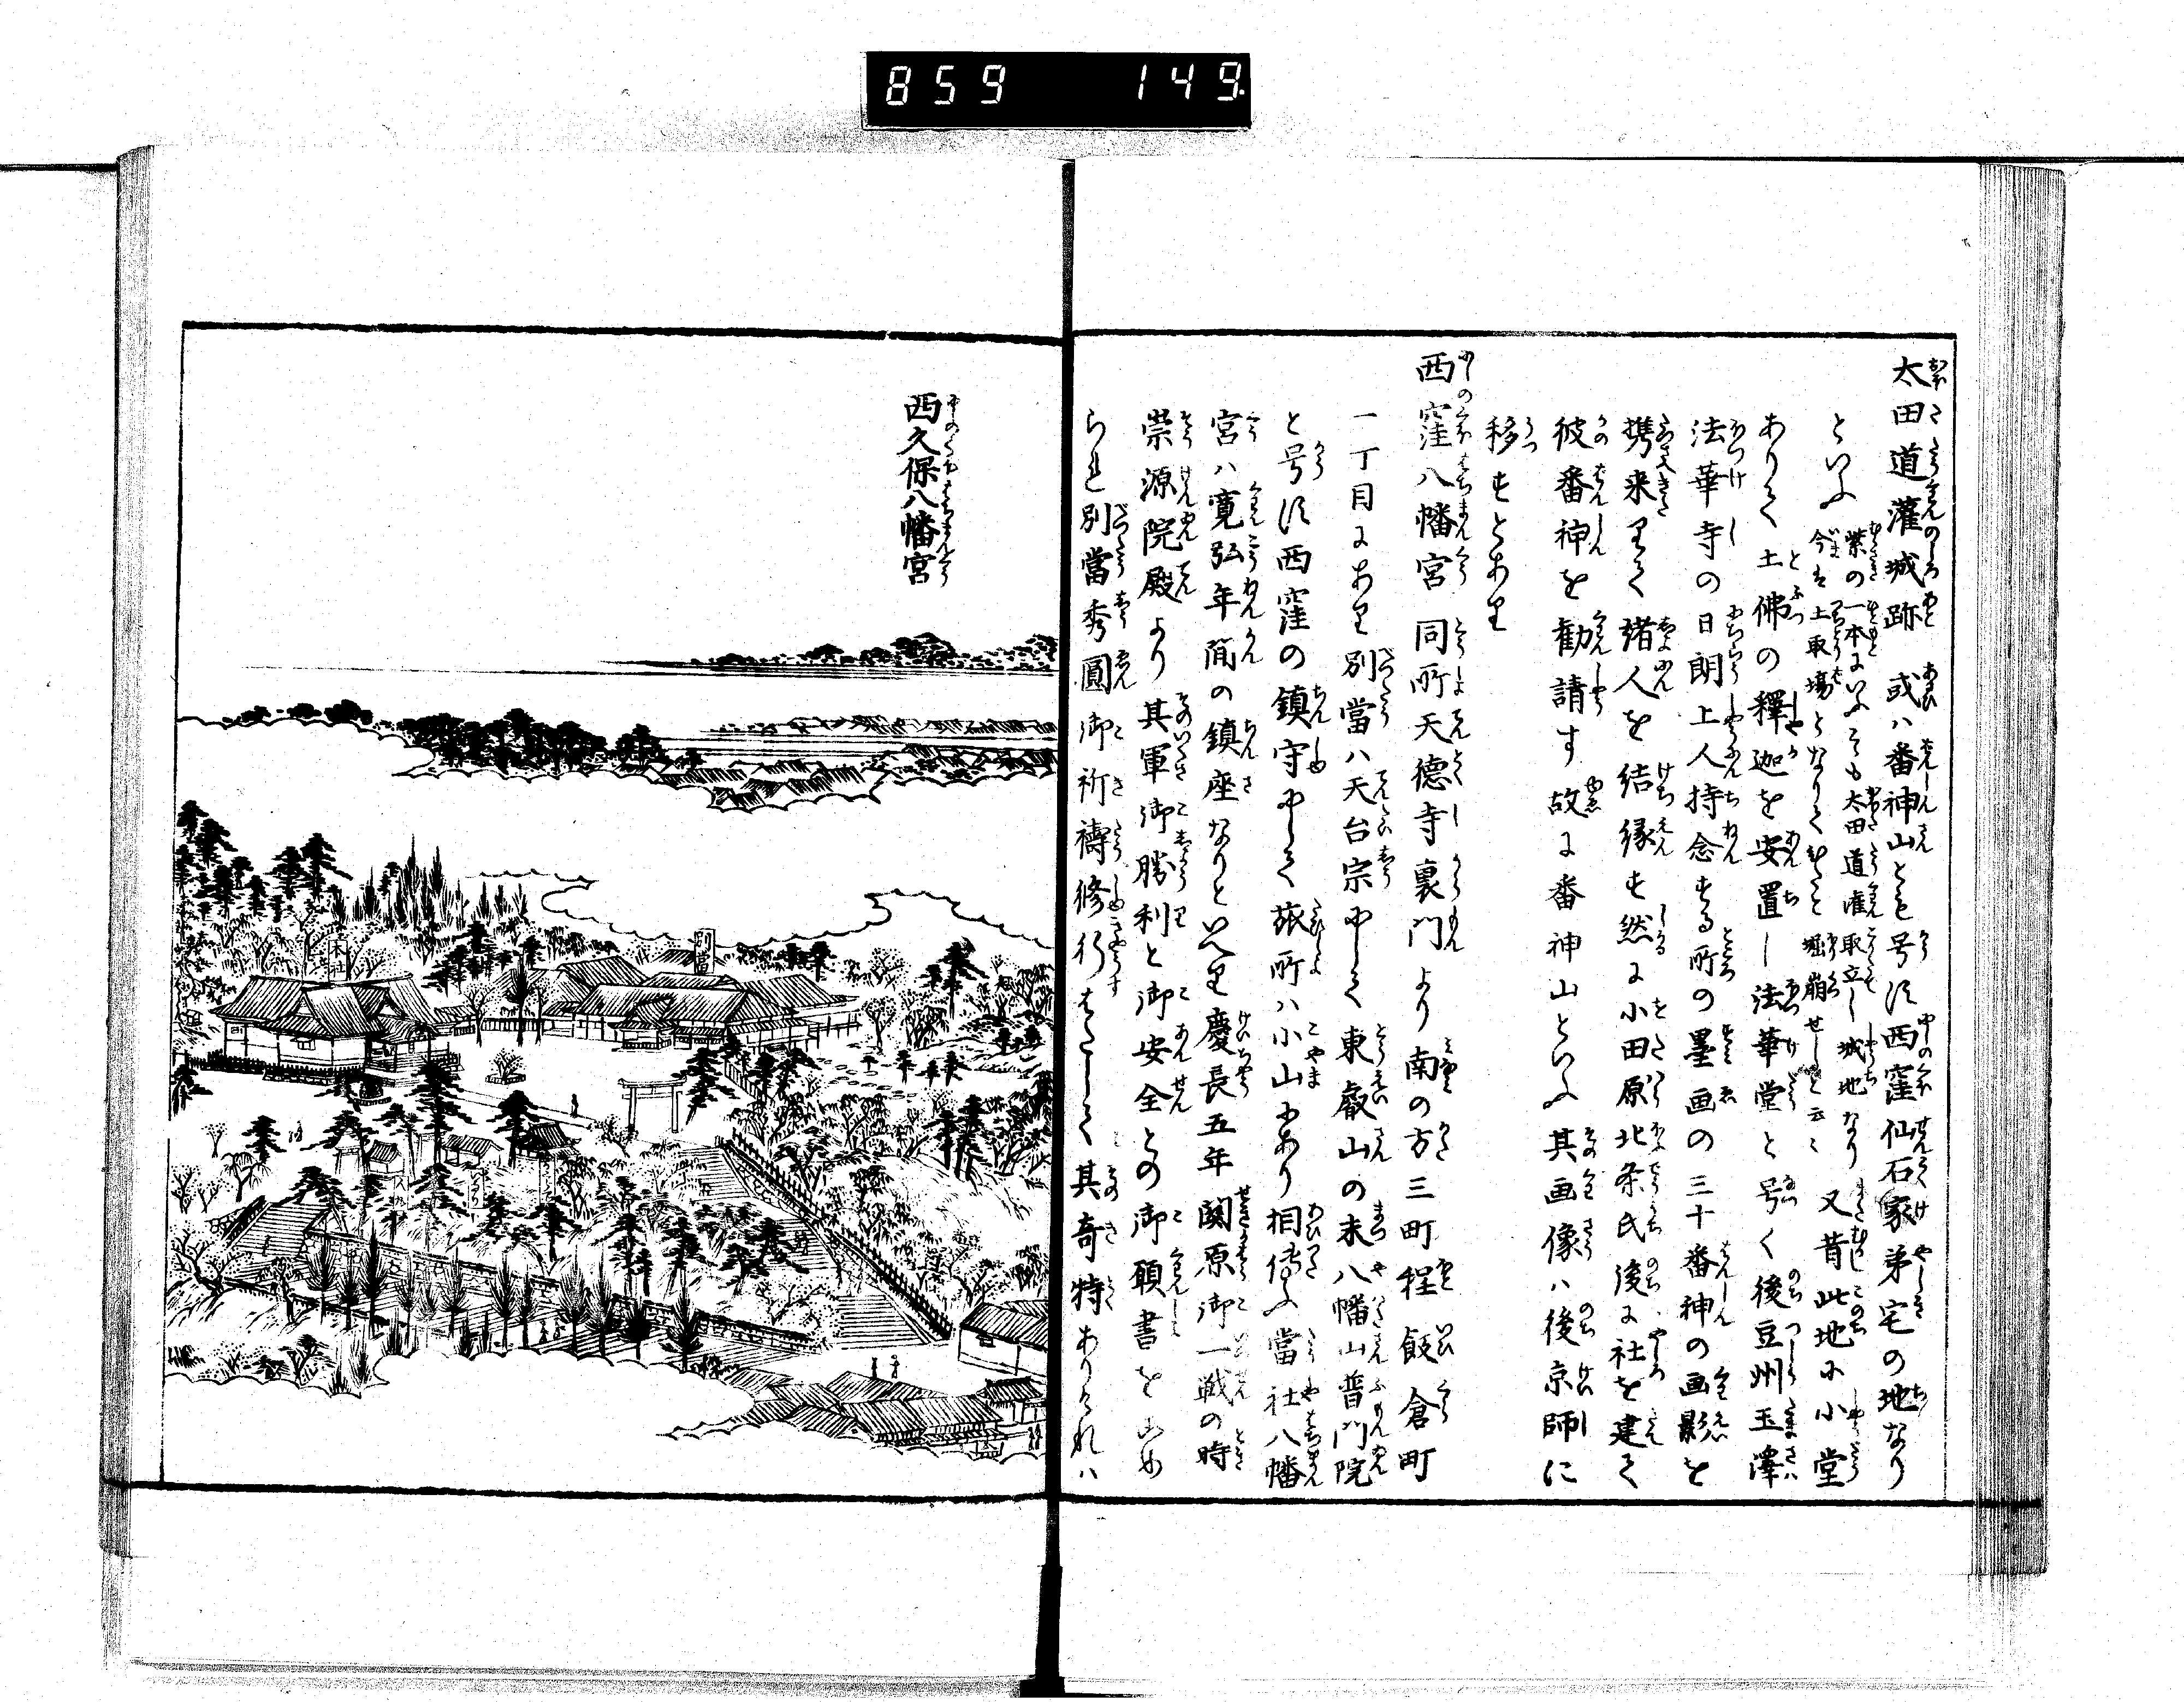 859 149
太田道灌城跡 或ハ番神山とも号す西窪仙石家弟宅の地なり
といふ 紫の一本にいふそも太田道灌取立し城地なり
今は土取場となりてことごと堀崩せしと云々 又昔此地に小堂
ありて土佛の釋迦を安置し法華堂と号く後豆州玉澤
法華寺の日朗上人持念する所の墨画の三十番神の画影を
携来りて諸人を結縁す然に小田原北条氏後に社を建て
彼番神を勧請す故に番神山といふ其画像ハ後京師に
移すとあり
西窪八幡宮 同所天徳寺裏門より南の方三町程飯倉町
一丁目にあり別當ハ天台宗にして東叡山の末八幡山普門院
と号す西窪の鎮守にして旅所ハ小山にあり相傳ふ當社八幡
宮ハ寛弘年間の鎮座なりといへり慶長五年関原御一戦の時
崇源院殿より其軍御勝利と御安全との御願書をこめ
られ別當秀圓御祈祷修行す其奇特ありけれハ
西久保八幡宮
本社
別當